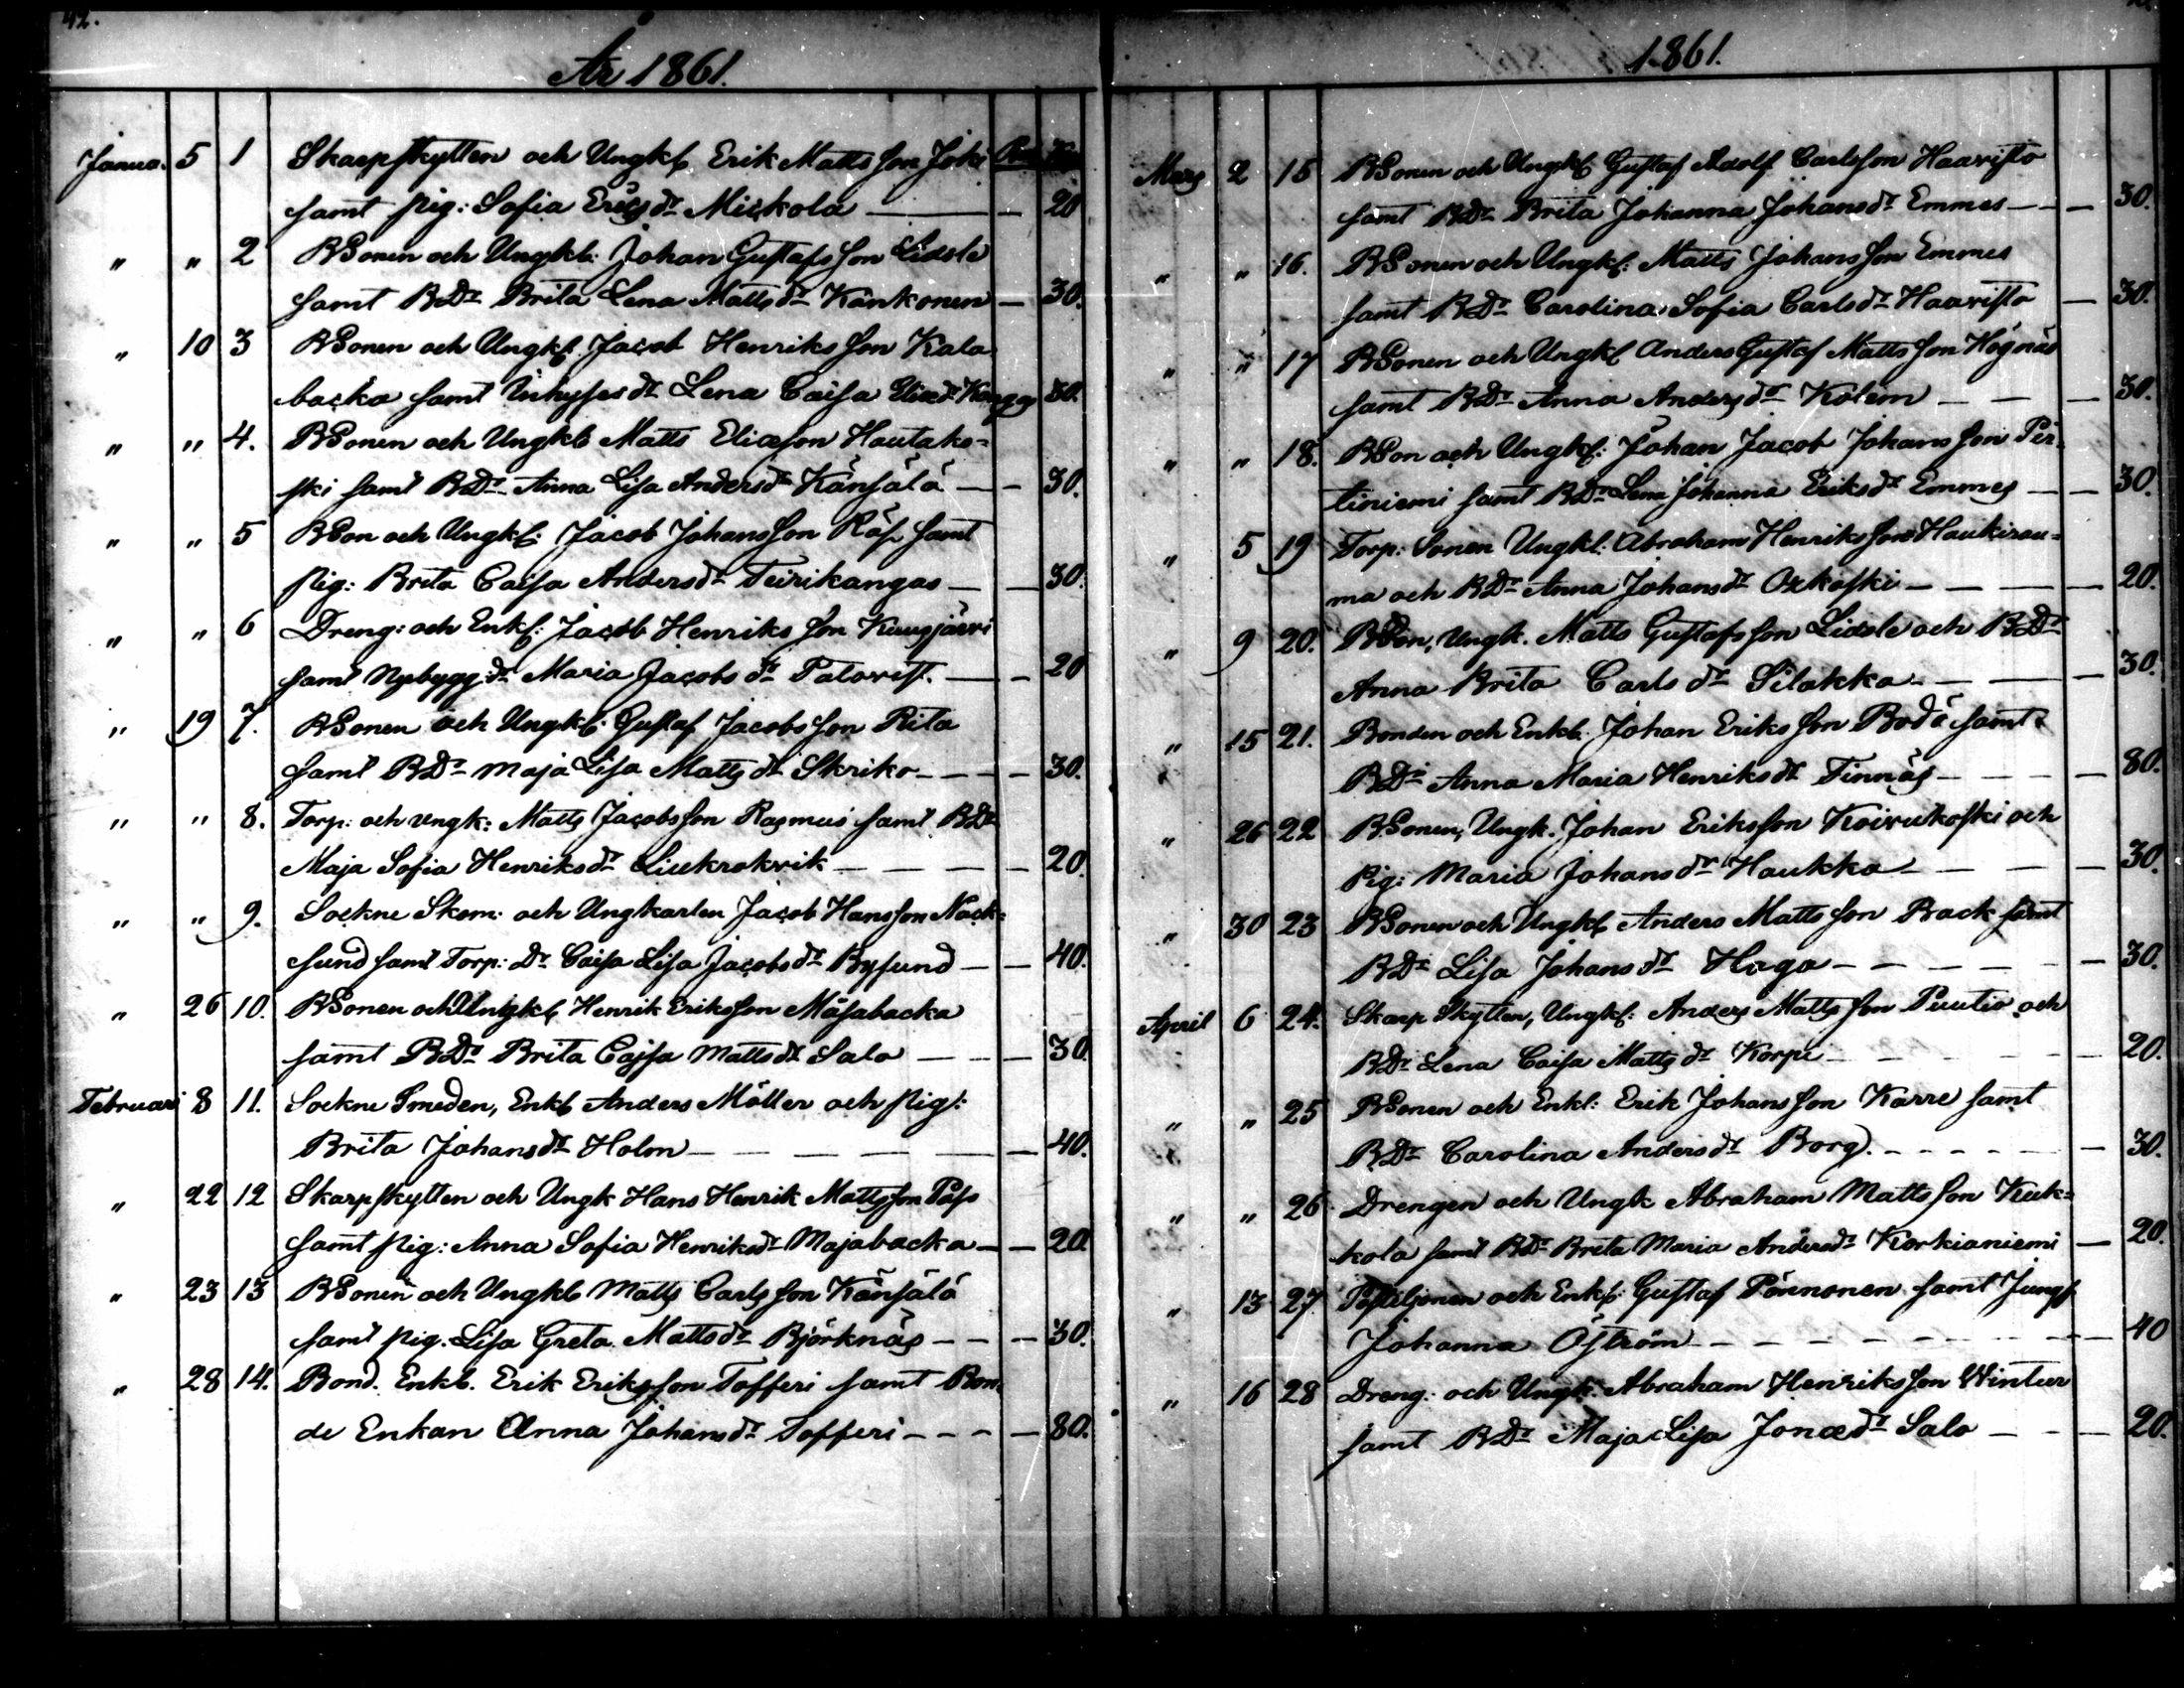 42.
År 1861.
Janua. 5 1 Skarpskytten och Ungkl Erik Mattsson Joki
samt pig: Sofia Ericsdr Mickola — — 20
" " 2 BSonen och Ungkl: Johan Gustafsson Lidsle
samt BDr Brita Lena Mattsdr Känkonen — 30.
" 10 3 BSonen och Ungkl: Jacob Henriksson Kala
backa samt Inhysesdr Lena Caisa Eliædr 30.
" " 4. BSonen och Ungkl Matts Eliæson Hautako=
ski samt BDr Anna Lisa Andersdr Känsälä — — 30.
" " 5 BSon och Ungkl: Jacob Johansson Räf samt
pig: Brita Caisa Andersdr Teirikangas — — 30.
" " 6 Dreng: och Enkl: Jacob Henriksson Kuusjärvi
samt Nybygg.dr Maria Jacobsdr Palorist. — — 20
" 19 7. BSonen och Ungkl: Gustaf Jacobsson Rita
samt BDr Maja Lisa Mattsdr Skriko — — — 30.
" " 8. Torp: och ungk: Matts Jacobsson Rasmus samt BDr
Maja Sofia Henriksdr Liukrokvik — — — — 20.
" " 9. Sockne Skom: och Ungkarlen Jacob Hansson Näck=
sund samt Torp: Dr Caisa Lisa Jacobsdr Bysund — — 40.
" 26 10. BSonen och Ungkl Henrik Eriksson Måsabacka
samt BDr Brita Cajsa Mattsdr Salo — — — 30.
Februari 8 11. Sockne Smeden, Enkl Anders Möller och pig:
Brita Johansdr Holm — — — — — 40.
" 22 12 Skarpskytten och Ungk Hans Henrik Mattsson Påss
samt pig: Anna Sofia Henriksdr Majabacka — — 20.
" 23 13 BSonen och Ungkl Matts Carlsson Känsälä
samt pig. Lisa Greta Mattsdr Björknäs — — — 30.
" 28 14. Bond. Enkl. Erik Eriksson Tofferi samt Bon=
de Enkan Anna Johansdr Tofferi — — — — 80.
1861.
Mars 2 15 BSonen och Ungkl Gustaf Adolf Carlsson Haavisto
samt BDr Brita Johanna Johansdr Emmes — — — 30.
" " 16. BSonen och Ungkl: Matts Johansson Emmes
samt BDr Carolina Sofia Carlsdr Haavisto — 30.
" " 17 BSonen och Ungkl Anders Gustaf Mattsson Högnäs
samt BDr Anna Andersdr Kolem — — — 30.
" " 18. BSon och Ungkl: Johan Jacob Johansson Per=
tiniemi samt BDr Lena Johanna Eriksdr Emmes — — 30.
" 5 19 Torp: Sonen Ungkl: Abraham Henriksson Haukirau=
ma och BDr Anna Johansdr Oxkoski — — — — 20.
" 9 20. BSon, Ungk. Matts Gustafsson Lidsle och BDr
Anna Brita Carlsdr Silakka — — — 30.
" 15 21. Bonden och Enkl. Johan Eriksson Bodö samt
BDr Anna Maria Henriksdr Finnäs — — — — 80.
" 26 22 BSonen, Ungk. Johan Eriksson Koivukoski och
Pig: Maria Johansdr Haukka — — — 30.
" 30 23 BSonen och Ungkl Anders Mattsson Back samt
BDr Lisa Johansdr Haga — — — — — — 30.
April 6 24. Skarp Skytten, Ungkl: Anders Mattsson Puutio och
BDr Lena Caisa Mattsdr Korpi — — — — — 20.
" " 25 BSonen och Enkl: Erik Johansson Karre samt
BDr Carolina Andersdr Borg. — — — — — 30.
" " 26 Drengen och Ungk Abraham Mattsson Kuk=
kola samt BDr Brita Maria Andersdr Korkianiemi — 20.
" 13 27. Postiljonen och Enkl: Gustaf Pönnonen samt Jungf
Johanna Öström — — — — — — — — 40
" 16 28 Dreng: och Ungk. Abraham Henriksson Winter
samt BDr Maja Lisa Jonædr Salo — — — 20.